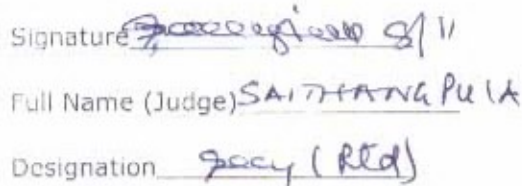 Signature 8/11
Full Name (Judge) SAITHANGPUIA
Designation (Rtd)